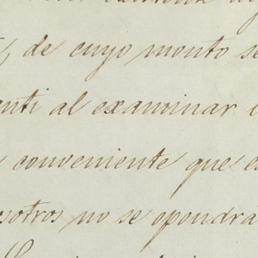 , de cuyo monto se
enti al examinar
conveniente que es
osotros no se opondra